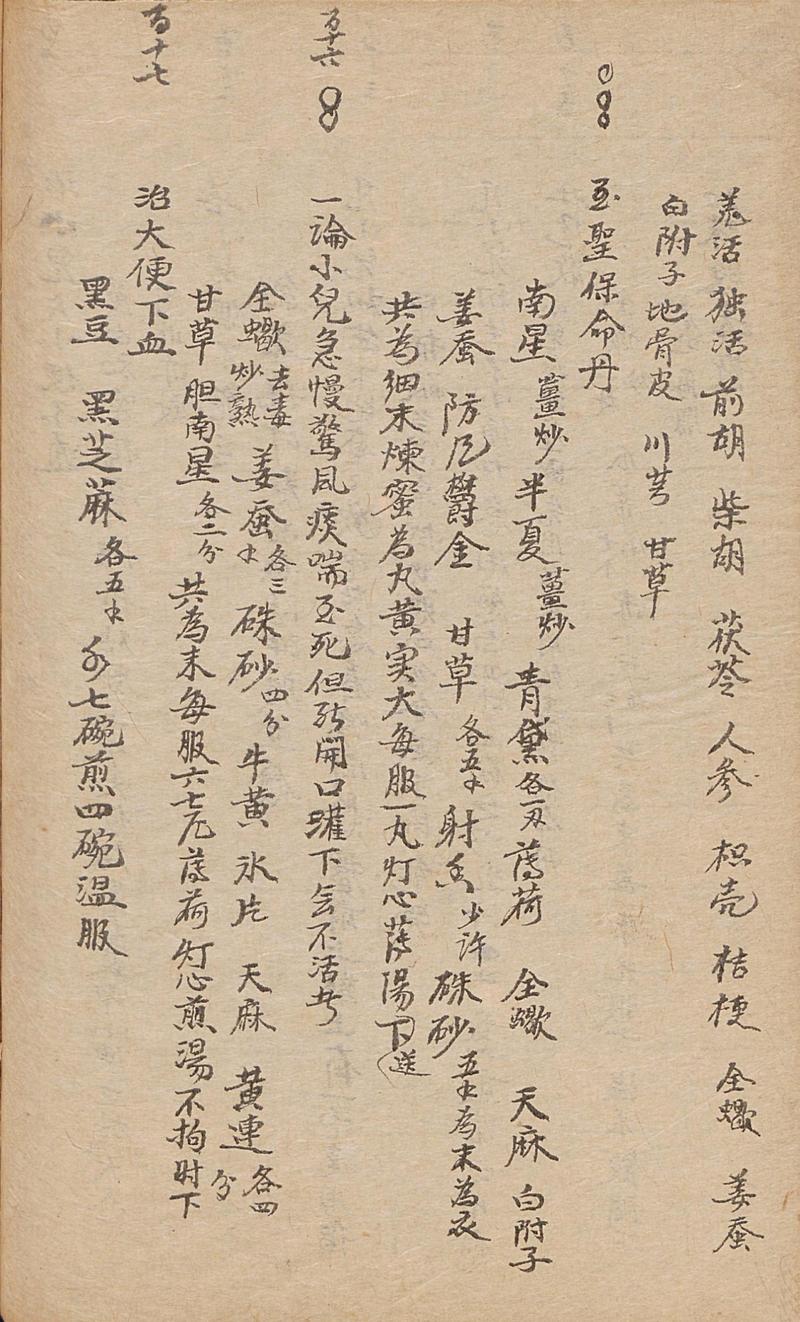 羌活 独活 前胡 柴胡 茯苓 人参 枳壳 桔梗 全蠍 姜蚕
白附子 地骨皮 川芎 甘草
至聖保命丹
南星 薑炒 半夏 薑炒 青黛 各一刄 薄荷 全蠍 天麻 白附子
姜蚕 防风 欝金 甘草 各五 射香 少许 硃砂 五 為末為衣
共為細末煉蜜為丸黄实大每服一丸灯心薄陽下送
百十六
一論小兒急慢驚風痰喘至死但能開口灌下無不活者
全蠍 去毒炒熟 姜蚕 各三 硃砂 四分 牛黄 氷片 天麻 黄連 各四分
甘草 胆南星 各二分 共為末每服六七厘薄荷灯心煎湯不拘时下
百十七
治大便下血
黑豆 黑芝蔴 各五 水七碗煎四碗温服